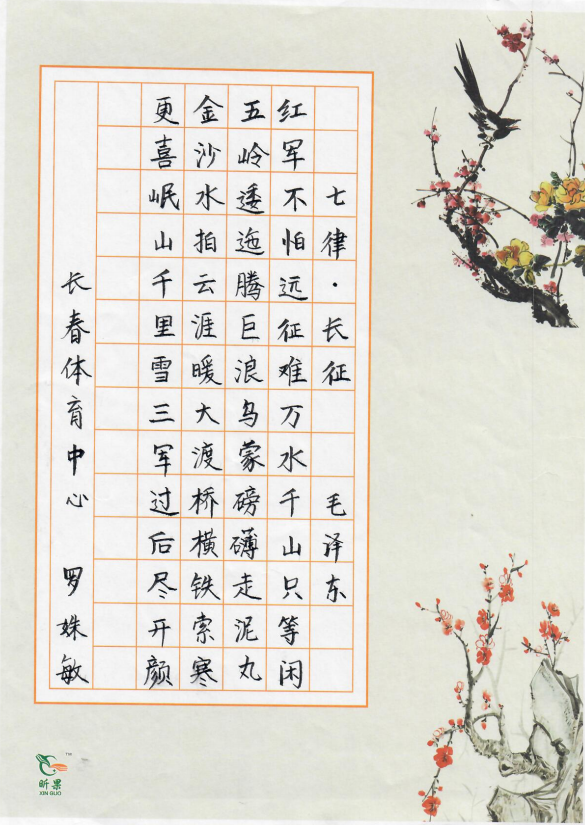 七律·长征 毛泽东
红军不怕远征难万水千山只等闲
五岭逶迤腾巨浪乌蒙磅礴走泥丸
金沙水拍云涯暖大渡桥横铁索寒
更喜岷山千里雪三军过后尽开颜
长春体育中心 罗姝敏
TM
昕果
XIN GUO